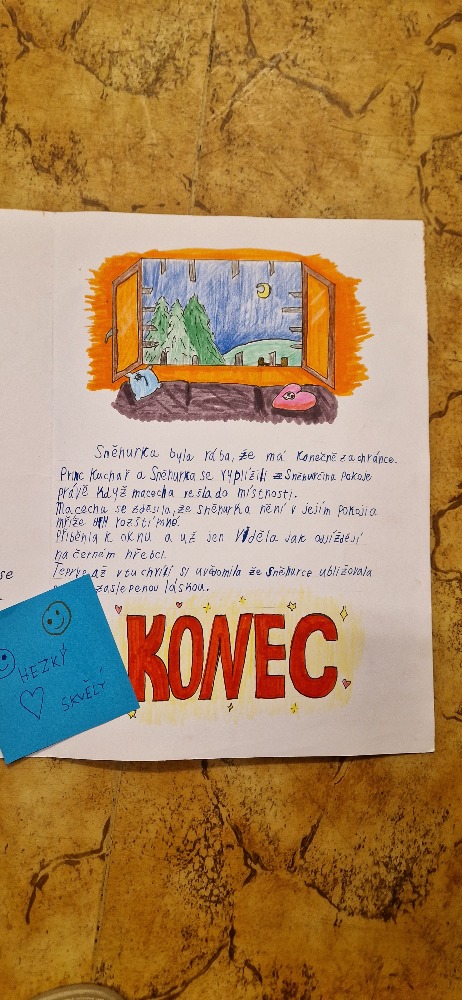 Sněhurka byla rába, že má konečně zachránce.
Princ Kuchař a Sněhurka se vyplížili z Sněhurčina pokoje
právě když macecha vešla do místnosti.
Macecha se zděsila, že Sněhurka není v jejím pokoji a
mříže rozštípané.
Přiběhla k oknu a už jen viděla jak odjíždějí
na černém hřebci.
Teprve až v tu chvíli si uvědomila že Sněhurce ubližovala
zaslepenou láskou.
se
HEZKÝ
SKVĚLÝ
KONEC